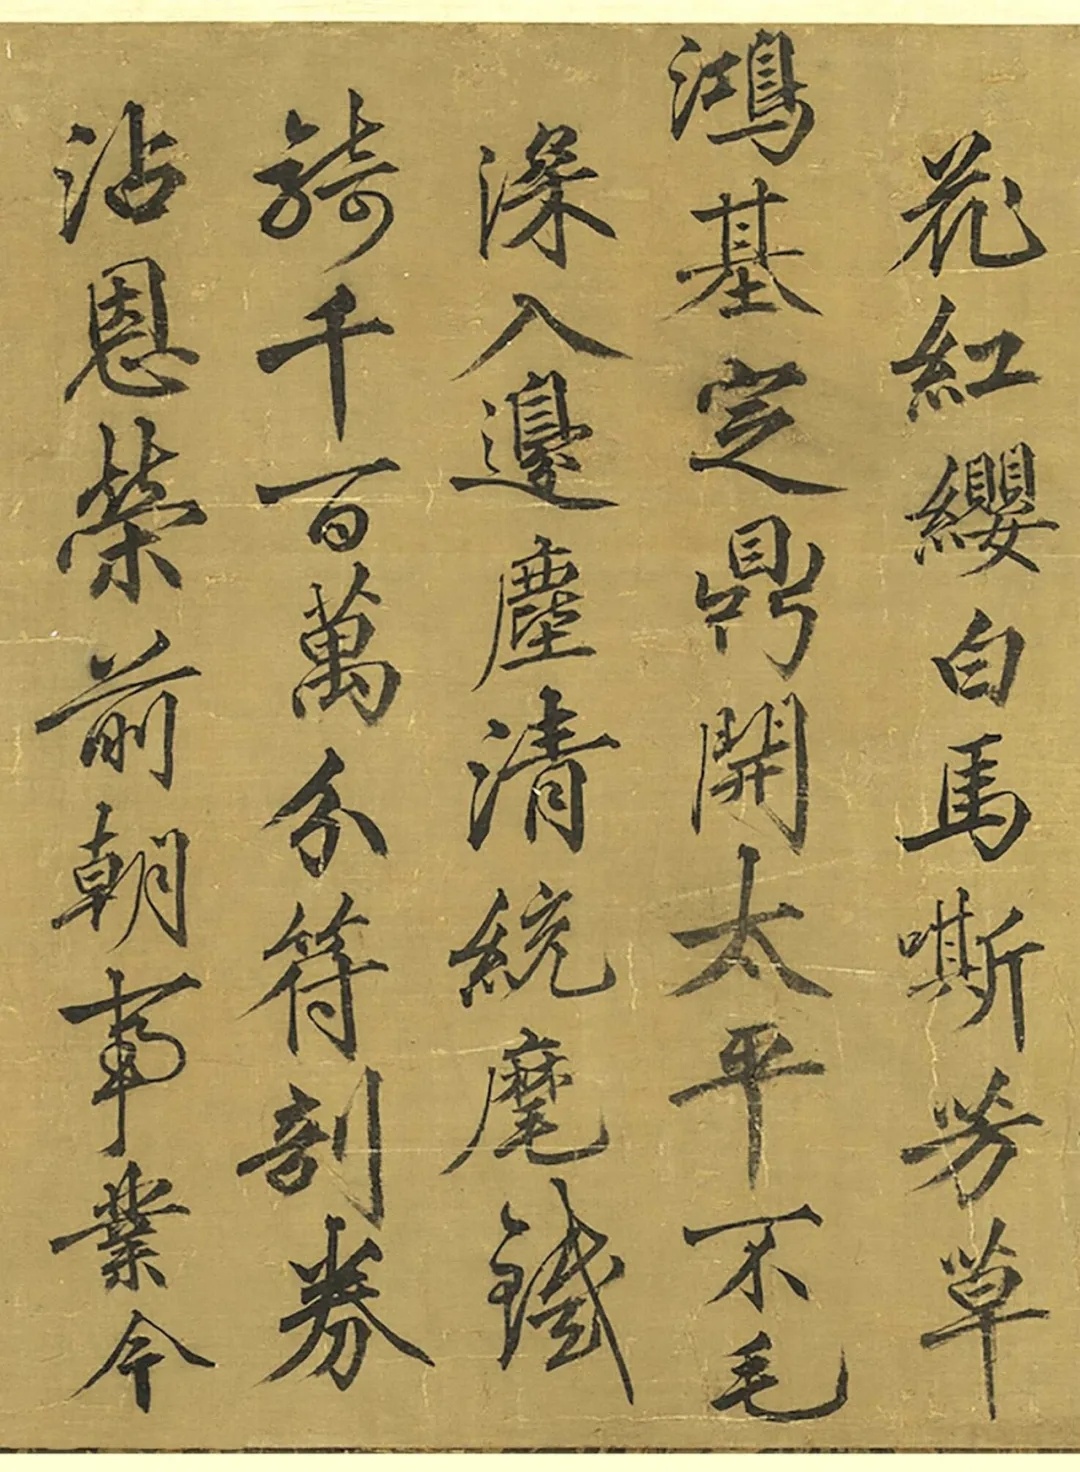 花紅纓白馬嘶芳草
鴻基定鼎開太平不毛
深入邊塵清統麾鐵
騎千百萬分符剖券
沾恩榮前朝事業今